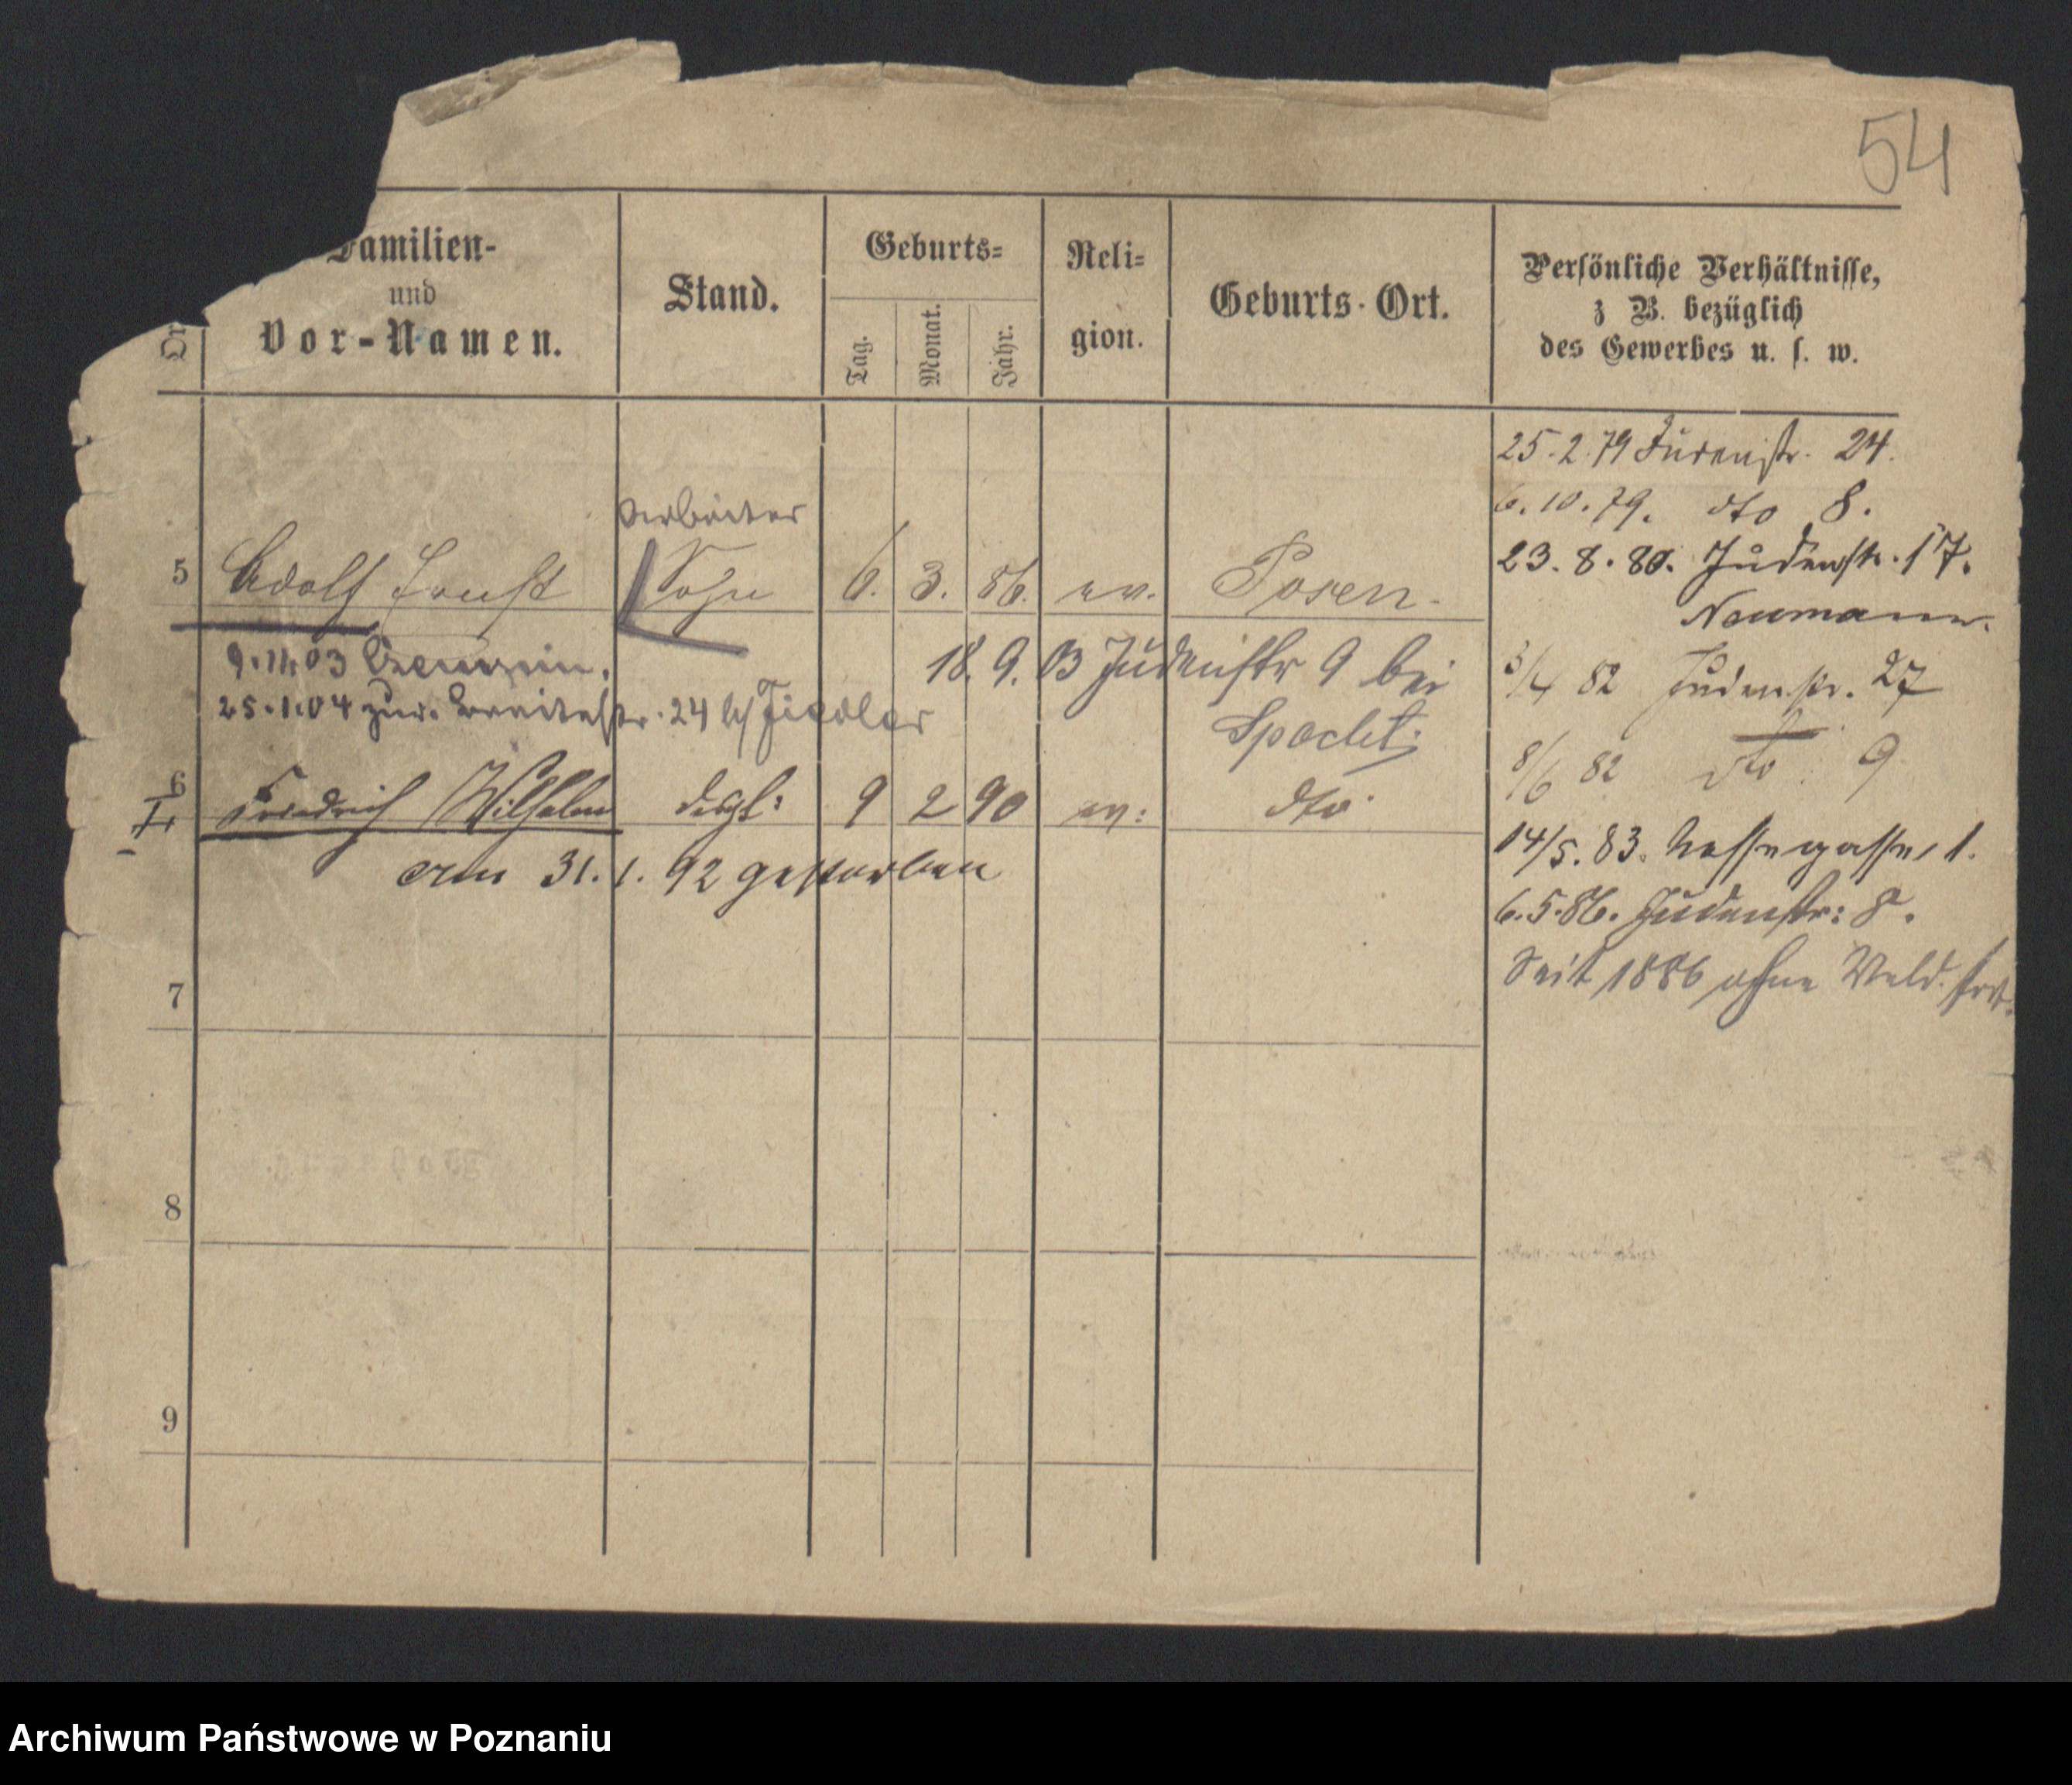 54
Familien-
und
Vor-Namen.
Stand.
Geburts-
Tag.
Monat.
Jahr.
Reli-
gion.
Geburts-Ort.
Persönliche Verhältnisse,
z B. bezüglich
des Gewerbes u. s. w.
25.2.79 Judenstr. 24.
6.10.79. dto 8.
23.8.80. Judenstr. 17.
Neumann.
3/4 82 Judenstr. 27
8/6 82 dto 9
14/5.83. 1.
6.5.86. Judenstr: 8.
Seit 1886 ohne Meld. fort.
Arbeiter
5 Adolf Ernst Sohn 6. 3. 86. ev. Posen.
18.9.03 Judenstr 9 bei
9.11.03
25.1.04 zur. Breitestr. 24 b/ Fiedler
6 Friedrich Wilhelm desgl: 9 2 90 ev: dto
am 31.1.92 gestorben
7
8
9
Archiwum Państwowe w Poznaniu